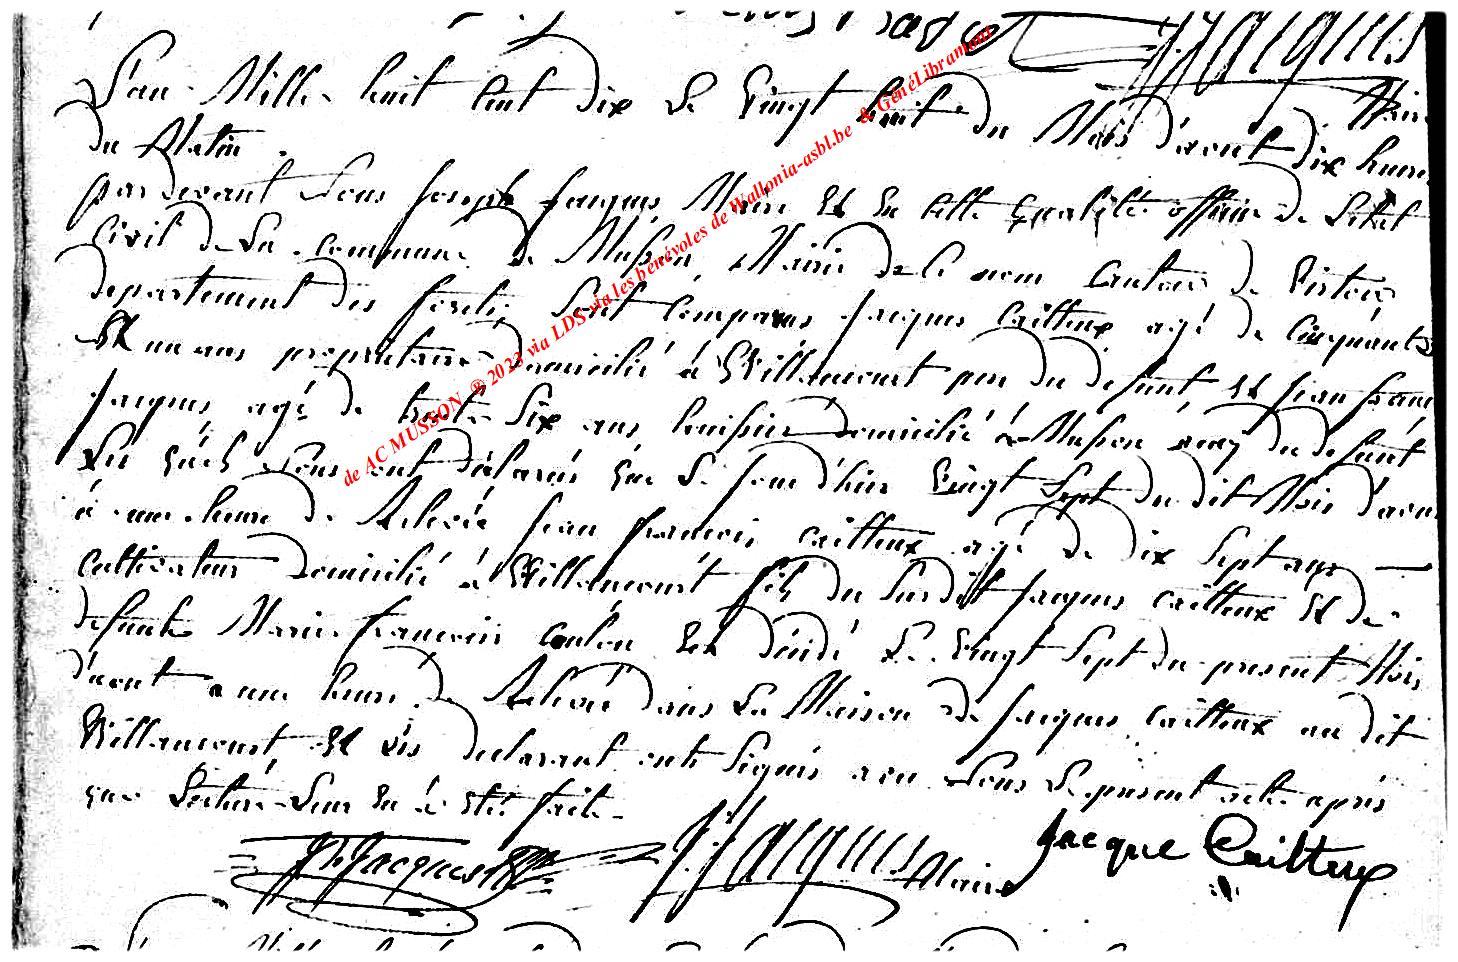 J. Jacques
Maire
L'an Mille huit Cent dix Le Vingt huit du Mois d'aout dix heures
du Matin
par devant Nous Joseph Jacques Maire Et En Cette Qualité officier de L'etat
Civil de La Commune de Musson, Mairie de Ce nom Canton de Virton
departement des forets Sont Comparus Jacques Cailteux agé de Cinquante
Et un ans proprietaire domicilié à Willancourt pere du defunt Et Jean francois
Jacques agé de trente Six ans huissier domicilié à Musson du defunt
Les quels Nous ont déclarés que Le Jour d'hier Vingt Sept du dit Mois d'aout
à une heure de Relevée Jean francois Cailteux agé de dix Sept ans
Cultivateur domicilié à Willancourt fils du Susdit Jacques Cailteux Et de
defunte Marie francoise Est décédé Le Vingt Sept du present Mois
d'aout a une heure de Relevée dans La Maison de Jacques Cailteux au dit
Willancourt, Et Les declarant ont Signés avec Nous Le present acte après
que Lecture Leur En à Eté faite
J. F. Jacques J. Jacques Maire Jacque Cailteux
de AC MUSSON ® 2023 via LDS via les bénévoles de Wallonia-asbl.be & GénéLibramont